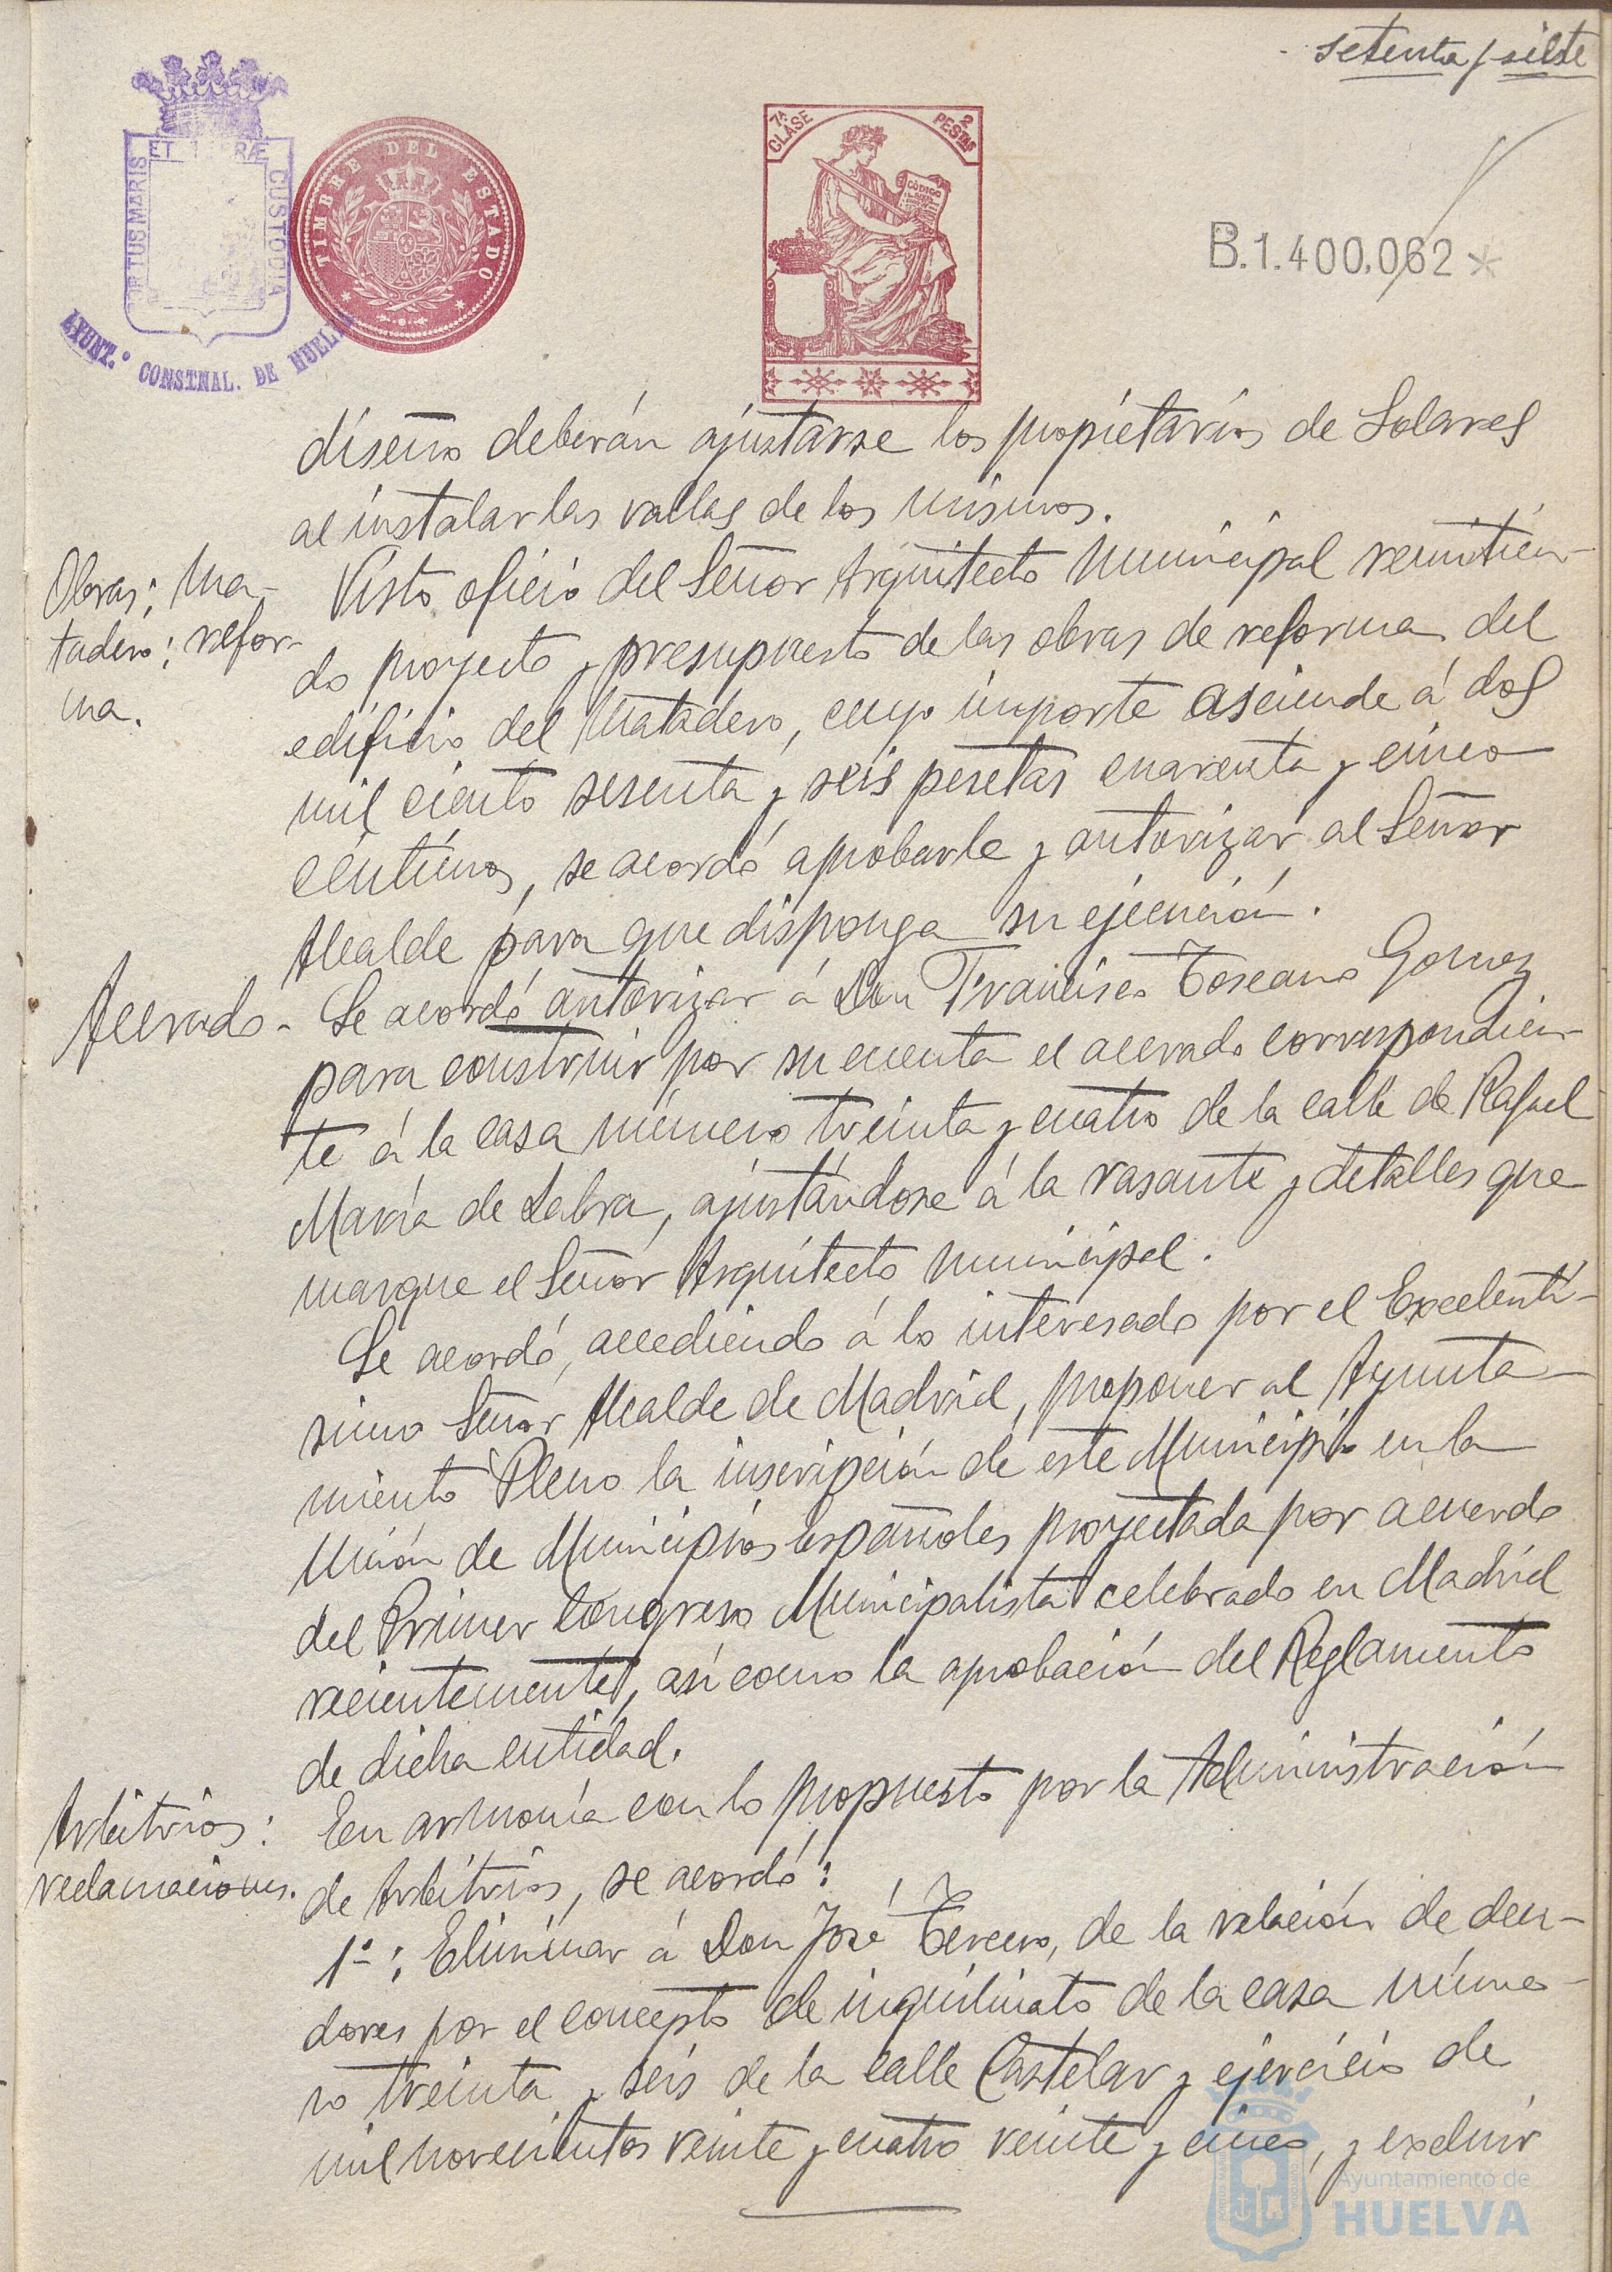 setenta y siete
7ª CLASE
2 PESTAS
CÓDIGO
ET TERRÆ
PORTUS MARIS
CUSTODIA
AYUNT.º CONSTNAL. DE HUELVA
TIMBRE DEL ESTADO
B.1.400.062*
diseño deberán ajustarse los propietarios de Solares
al instalar las vallas de los mismos.
Obras; Ma-
tadero; refor-
ma.
Visto oficio del Señor Arquitecto Municipal remitien-
do proyecto y presupuesto de las obras de reforma del
edificio del Matadero, cuyo importe asciende á dos
mil ciento sesenta y seis pesetas cuarenta y cinco
céntimos, se acordó aprobarle y autorizar al Señor
Alcalde para que disponga su ejecución.
Acerado-
Se acordó autorizar á Don Francisco Toscano Gomez
para construir por su cuenta el acerado correspondien-
te á la casa número treinta y cuatro de la calle de Rafael
María de Labra, ajustándose á la rasante y detalles que
marque el Señor Arquitecto Municipal.
Se acordó, accediendo á lo interesado por el Excelentí-
simo Señor Alcalde de Madrid, proponer al Ayunta-
miento Pleno la inscripción de este Municipio en la
Unión de Municipios españoles proyectada por acuerdo
del Primer Congreso Municipalista celebrado en Madrid
recientemente, así como la aprobación del Reglamento
de dicha entidad.
Arbitrios:
reclamaciones.
En armonía con lo propuesto por la Administración
de Arbitrios, se acordó:
1º: Eliminar á Don José Tercero, de la relación de deu-
dores por el concepto de inquilinato de la casa núme-
ro treinta y seis de la calle Castelar y ejercicio de
mil novecientos veinte y cuatro veinte y cinco, y excluir
Ayuntamiento de
HUELVA